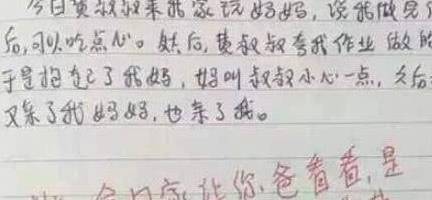 今日黄叔叔来我家玩妈妈,说我做完
后,可以吃点心。然后,黄叔叔夸我作业做的
于是抱起了我妈,妈叫叔叔小心一点,之后
又亲了我妈妈,也亲了我。
今日家让你爸看看,是